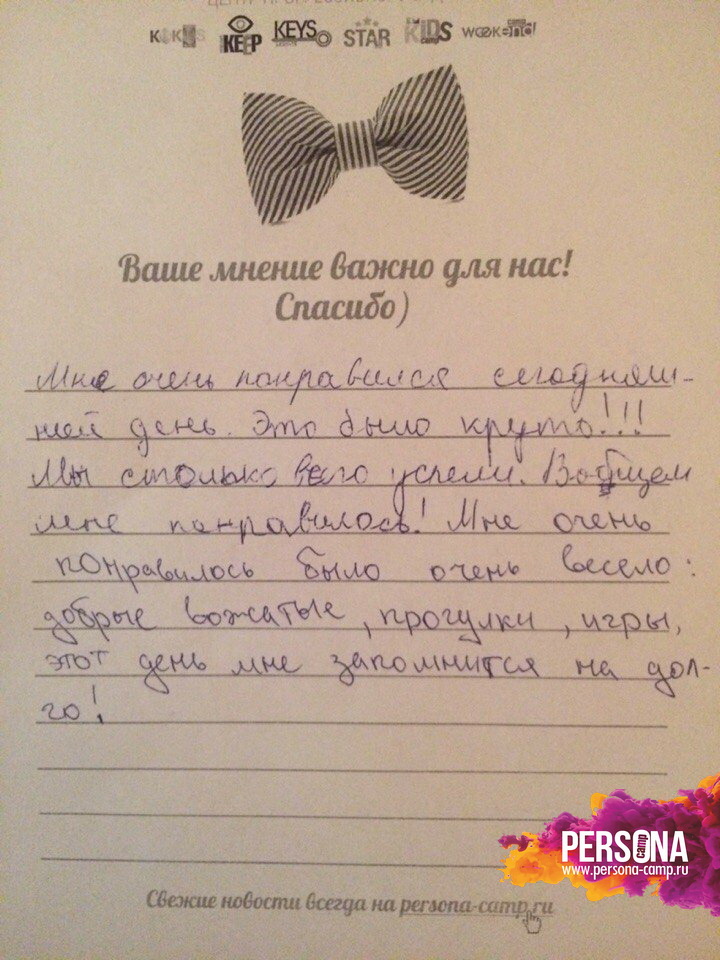 KEEP
KEYS
STAR
KIDS
camp
Ваше мнение важно для нас!
Спасибо)
Мне очень понравился сегодняш-
ний день. Это было круто!!!
Мы столько всего успели. Вобщем
мне понравилось! Мне очень
понравилось было очень весело:
добрые вожатые, прогулки, игры,
этот день мне запомнится на дол-
го!
PERSONA
camp
www.persona-camp.ru
Свежие новости всегда на persona-camp.ru